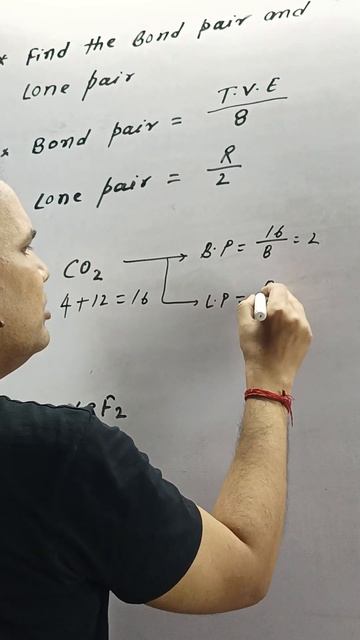 * Find the Bond pair and
Lone pair
* Bond pair = T.V.E / 8
Lone pair = R / 2
CO₂ → B.P = 16/8 = 2
4+12=16 → L.P =
F₂